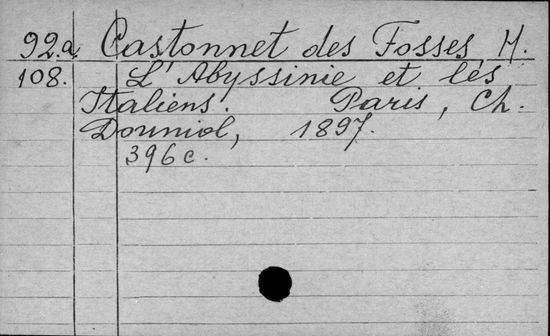 92.a Castonnet des Fosses H.
108. L'Abyssinie et les
Italiens. Paris, Ch.
Douniol, 1897.
396 c.